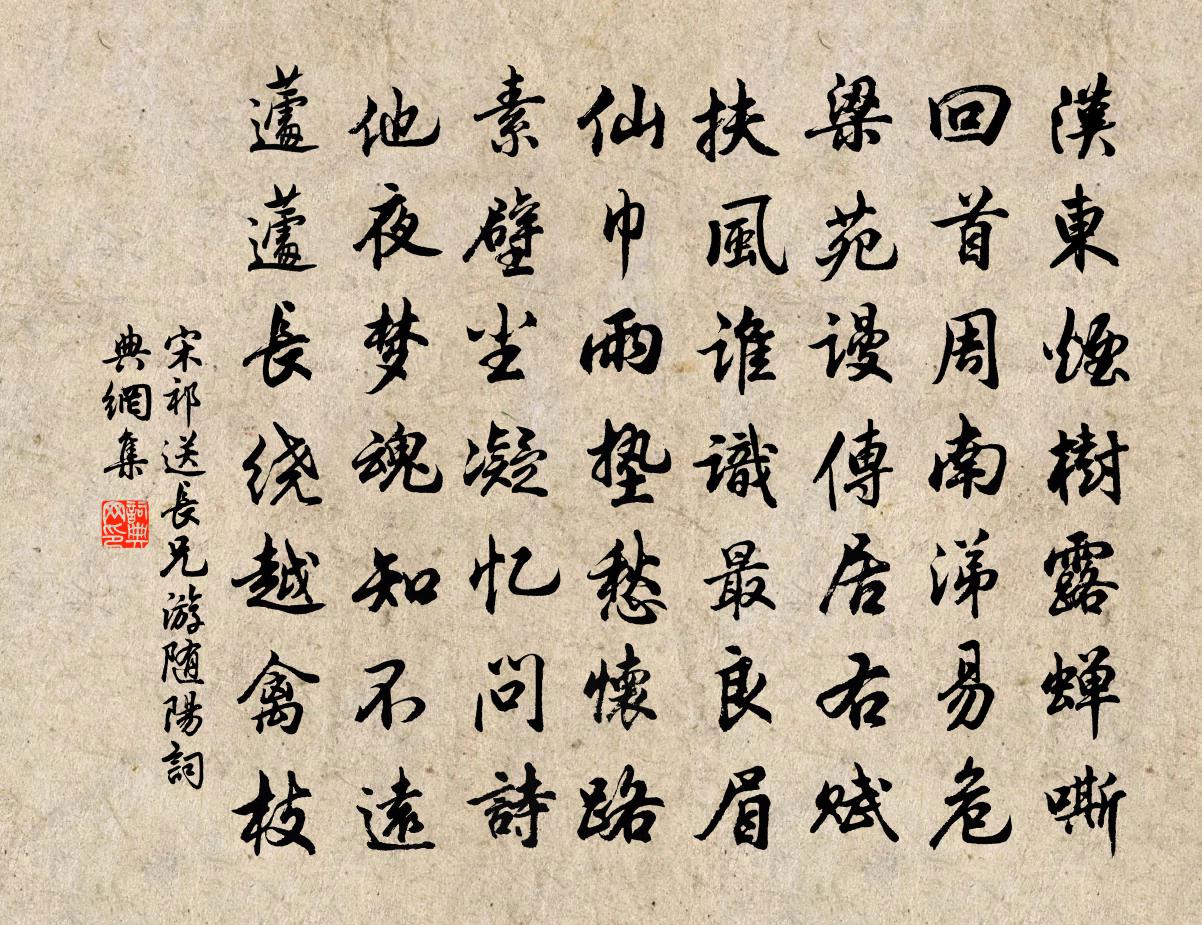 漢東煙樹露蟬嘶
回首周南涕易危
梁苑謾傳居右赋
扶風誰識最良眉
仙巾雨墊愁懷路
素壁尘凝忆問詩
他夜梦魂知不遠
蘧蘧長绕越禽枝
宋祁送長兄游随陽詞
典網集
詞典
网印